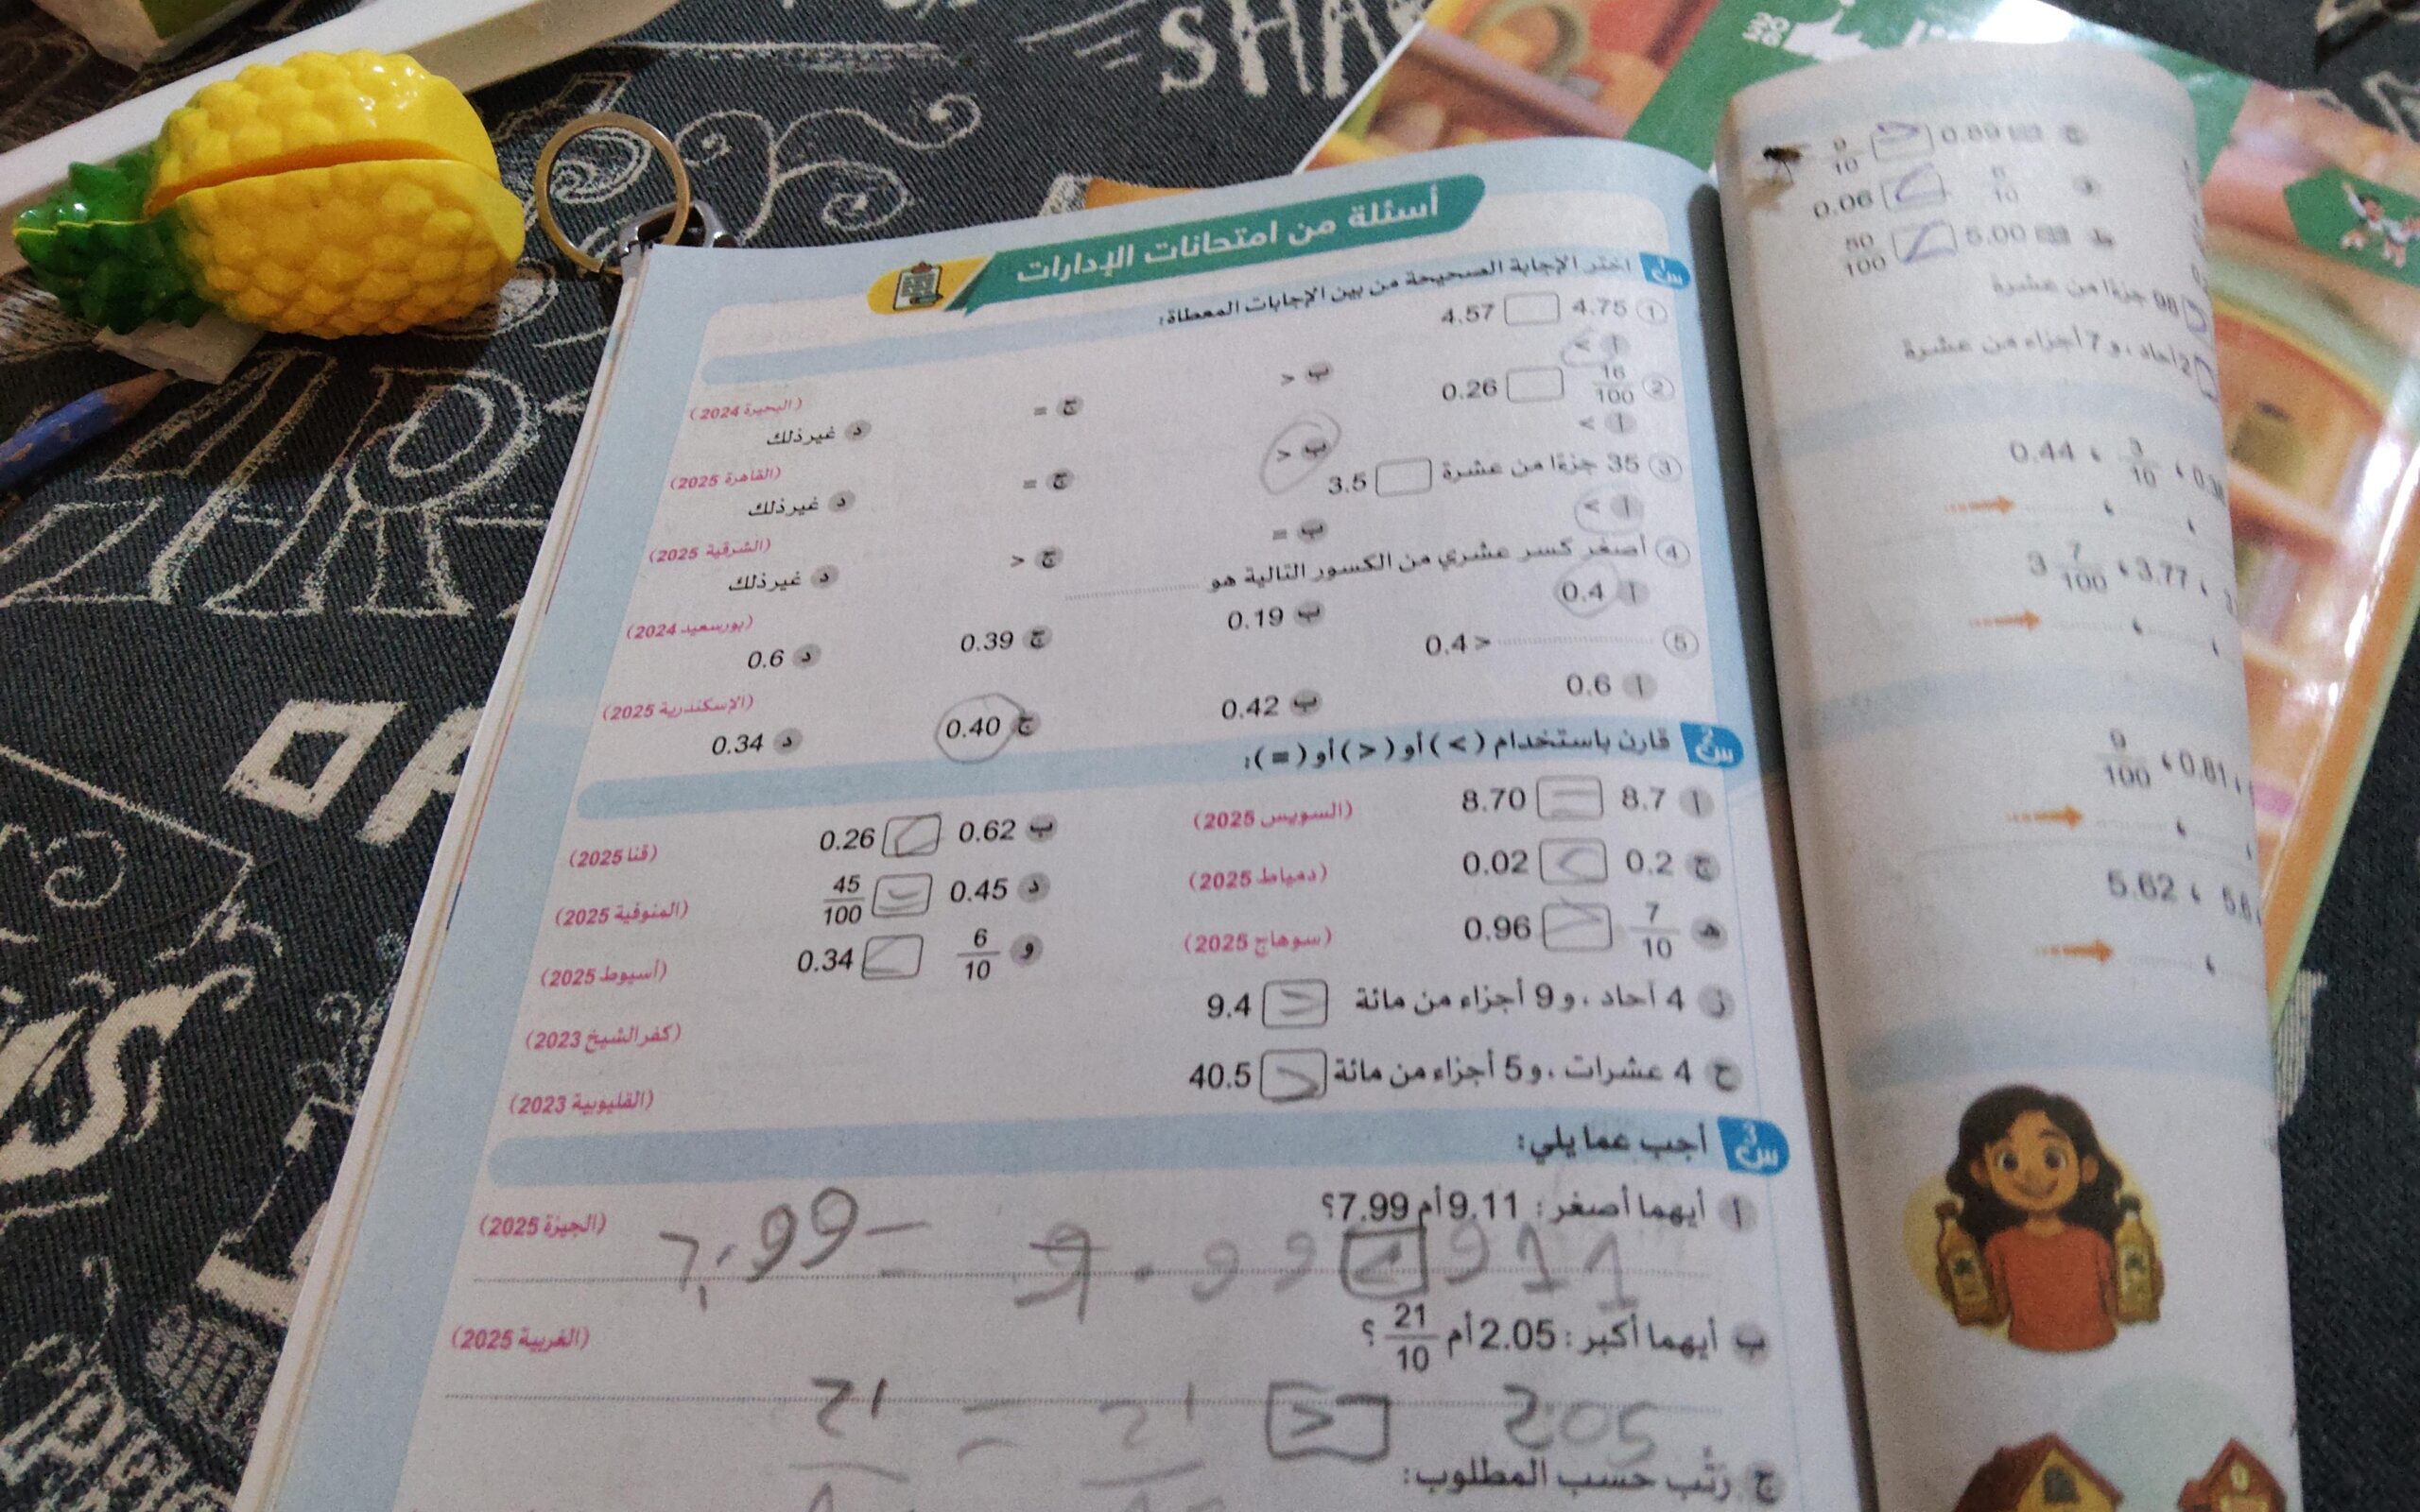 SHA
أسئلة من امتحانات الإدارات
س1 اختر الإجابة الصحيحة من بين الإجابات المعطاة:
1 4.75 □ 4.57
(البحيرة 2024)
أ > ب < ج = د غير ذلك
2 16/100 □ 0.26
(القاهرة 2025)
أ > ب < ج = د غير ذلك
3 35 جزءًا من عشرة □ 3.5
(الشرقية 2025)
أ > ب = ج < د غير ذلك
4 أصغر كسر عشري من الكسور التالية هو ............
(بورسعيد 2024)
أ 0.4 ب 0.19 ج 0.39 د 0.6
5 ............ < 0.4
(الإسكندرية 2025)
أ 0.6 ب 0.42 ج 0.40 د 0.34
س2 قارن باستخدام (>) أو (<) أو (=):
أ 8.7 = 8.70 (السويس 2025)
ب 0.62 > 0.26 (قنا 2025)
ج 0.2 > 0.02 (دمياط 2025)
د 0.45 = 45/100 (المنوفية 2025)
هـ 7/10 < 0.96 (سوهاج 2025)
و 6/10 > 0.34 (أسيوط 2025)
ز 4 آحاد، و 9 أجزاء من مائة < 9.4 (كفر الشيخ 2023)
ح 4 عشرات، و 5 أجزاء من مائة < 40.5 (القليوبية 2023)
س3 أجب عما يلي:
أ أيهما أصغر: 9.11 أم 7.99؟ (الجيزة 2025)
911
7.99
ب أيهما أكبر: 2.05 أم 21/10؟ (الغربية 2025)
205 < 21 = 21
ج رتب حسب المطلوب:
ج 0.89 □ 9/10
0.06
ط 5.00 □ 50/100
98 جزءًا من عشرة
2 آحاد، و 7 أجزاء من عشرة
3/10 ، 0.44
3.77 ، 3 7/100
0.81 ، 9/100
5.62